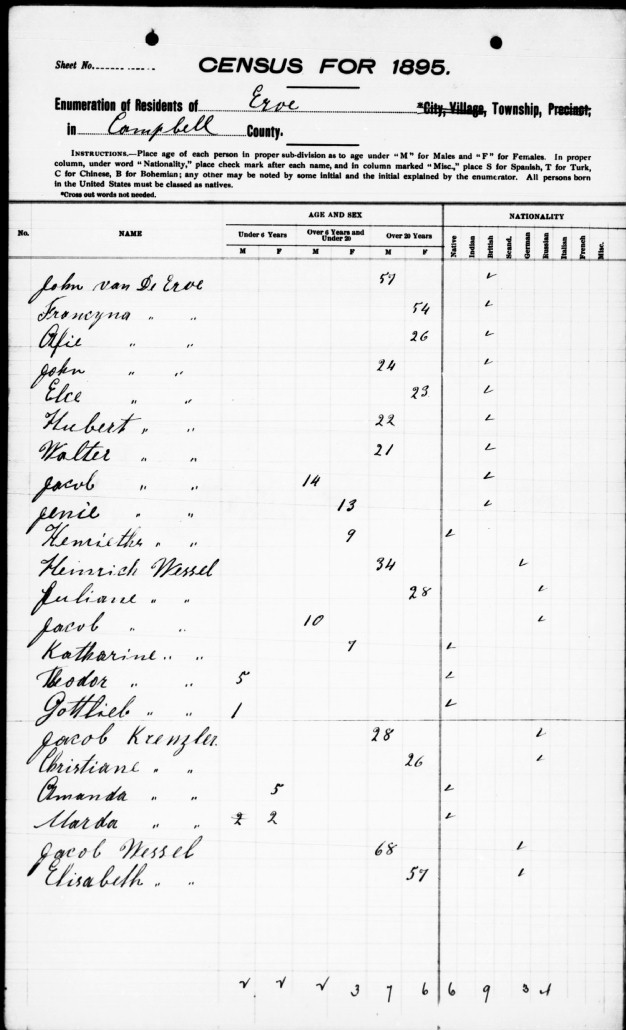 Sheet No.
CENSUS FOR 1895.
Enumeration of Residents of Erve *City, Village, Township, Precinct,
in Campbell County.
INSTRUCTIONS.—Place age of each person in proper sub-division as to age under "M" for Males and "F" for Females. In proper
column, under word "Nationality," place check mark after each name, and in column marked "Misc.," place S for Spanish, T for Turk,
C for Chinese, B for Bohemian; any other may be noted by some initial and the initial explained by the enumerator. All persons born
in the United States must be classed as natives.
*Cross out words not needed.
AGE AND SEX NATIONALITY
No. NAME Under 6 Years Over 6 Years and Under 20 Over 20 Years Native Indian British Scand. German Russian Italian French Misc.
M F M F M F
John van De Erve 57 ✓
Francyna " " 54 ✓
Afie " " 26 ✓
John " " 24 ✓
Elce " " 23 ✓
Hubert " " 22 ✓
Walter " " 21 ✓
Jacob " " 14 ✓
Jenie " " 13 ✓
Henriethe " " 9 ✓
Heinrich Wessel 34 ✓
Juliane " " 28 ✓
Jacob " " 10 ✓
Katharine " " 7 ✓
Theodor " " 5 ✓
Gottlieb " " 1 ✓
Jacob Krenzler 28 ✓
Christiane " " 26 ✓
Amanda " " 5 ✓
Marda " " 2 2 ✓
Jacob Wessel 68 ✓
Elisabeth " " 57 ✓
2 2 2 3 7 6 6 9 3 4